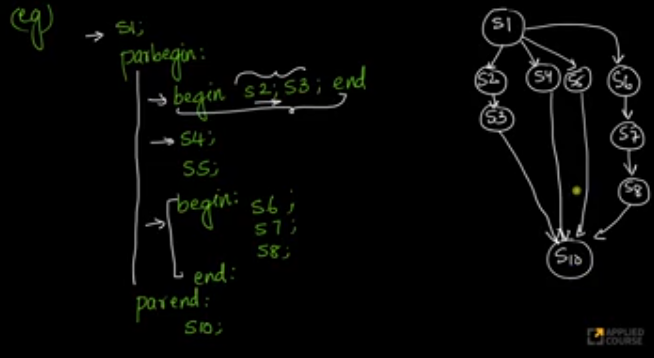 (eg)
→ S1;
parbegin:
→ begin S2; S3; end
→ S4;
S5;
→ begin: S6;
S7;
S8;
end:
parend:
S10;
S1
S2 S4 S5 S6
S3
S7
S8
S10
APPLIED
COURSE